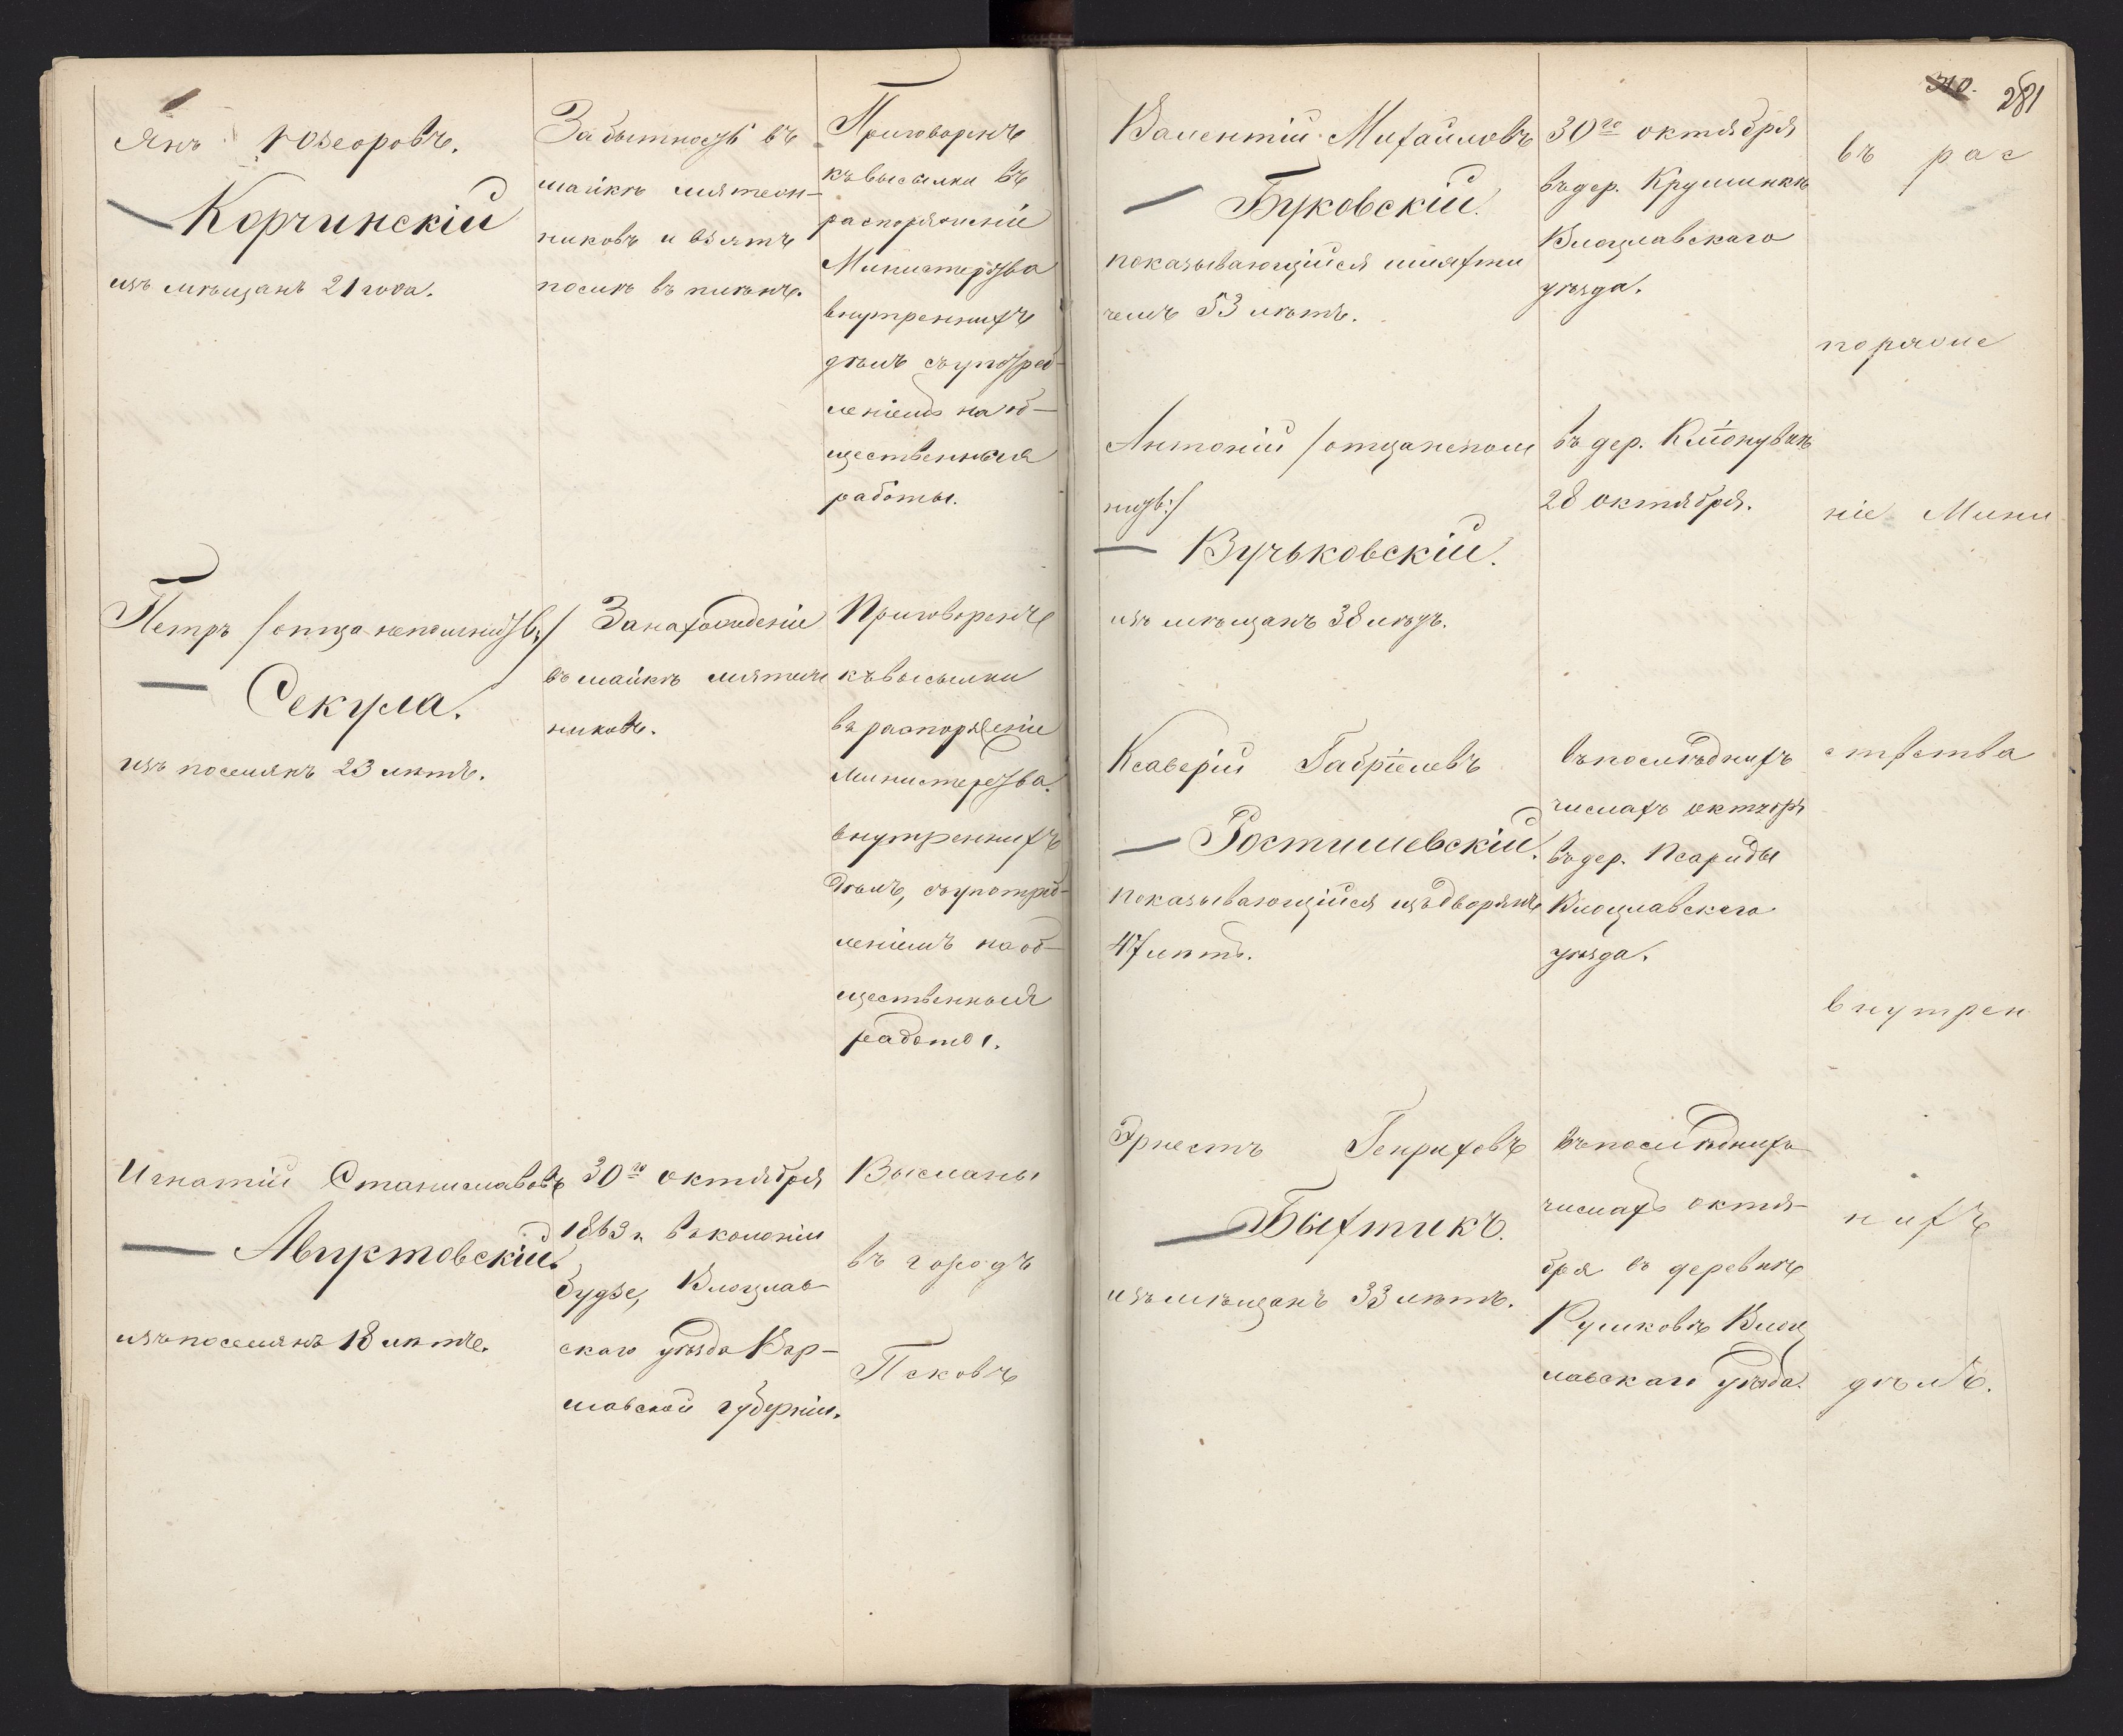 Янъ Юзеоровъ.
Корчинскій
изъ мѣщанъ 21 года.
За бытность въ
шайкѣ мятеж-
никовъ и взятъ
послѣ въ плѣнъ.
Приговоренъ
къ высылкѣ въ
распоряженіе
Министерства
внутреннихъ
дѣлъ съ употреб-
леніемъ на об-
щественныя
работы.
Петръ /отца не помнитъ:/
Секула.
изъ поселянъ 23 лѣтъ.
За нахожденіе
въ шайкѣ мятеж
никовъ.
Приговоренъ
къ высылки
въ распоряженіе
Министерства
внутреннихъ
дѣлъ, съ употреб-
леніемъ на об-
щественныя
работы.
Игнатій Станиславовъ
Авиктовскій.
изъ поселянъ 18 лѣтъ.
30го октября
1863 г. въ колоніи
Будзе, Влоцлав
скаго уѣзда Вар-
шавской губерніи.
Высланы
въ городъ
Псковъ
310. 281
Валентій Михайловъ
Буковскій.
показывающійся шляхти
чемъ 53 лѣтъ.
30го октября
въ дер. Крушинкѣ
Влоцлавскаго
уѣзда.
въ рас
поряже
Антоній /отца не пом
нитъ:/
Вучьковскій.
изъ мѣщанъ 38 лѣтъ.
въ дер.
28 октября.
ніе Мини
Ксаверій Габріелевъ
Ростишевскій.
показывающійся изъ дворянъ
47 лѣтъ.
въ послѣднихъ
числахъ октября
въ дер. Псариды
Влоцлавскаго
уѣзда.
стрства
внутрен
Эрнестъ Генриховъ
Быхтикъ.
изъ мѣщанъ 33 лѣтъ.
въ послѣднихъ
числахъ октя-
бря въ деревнѣ
Рушковѣ Влоц
лавскаго уѣзда.
нихъ
дѣлъ.